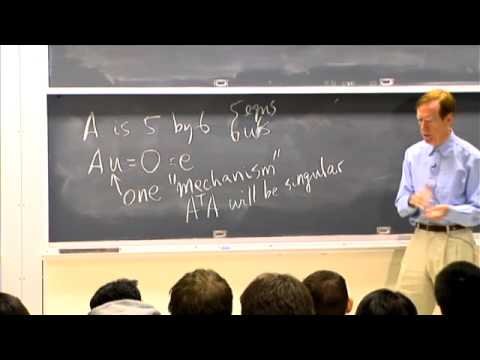 A is 5 by 6
5 eqns
6 u's
Au = 0 = e
one "mechanism"
AᵀA will be singular